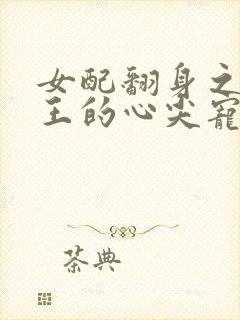 女配翻身之
王的心尖寵
茶典